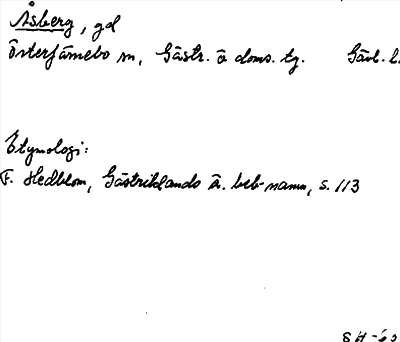 Åsberg, gd
Österfärnebo sn, Gästr. ö doms. tg. Gävl. l.
Etymologi:
F. Hedblom, Gästriklands ä. beb-namn, s. 113